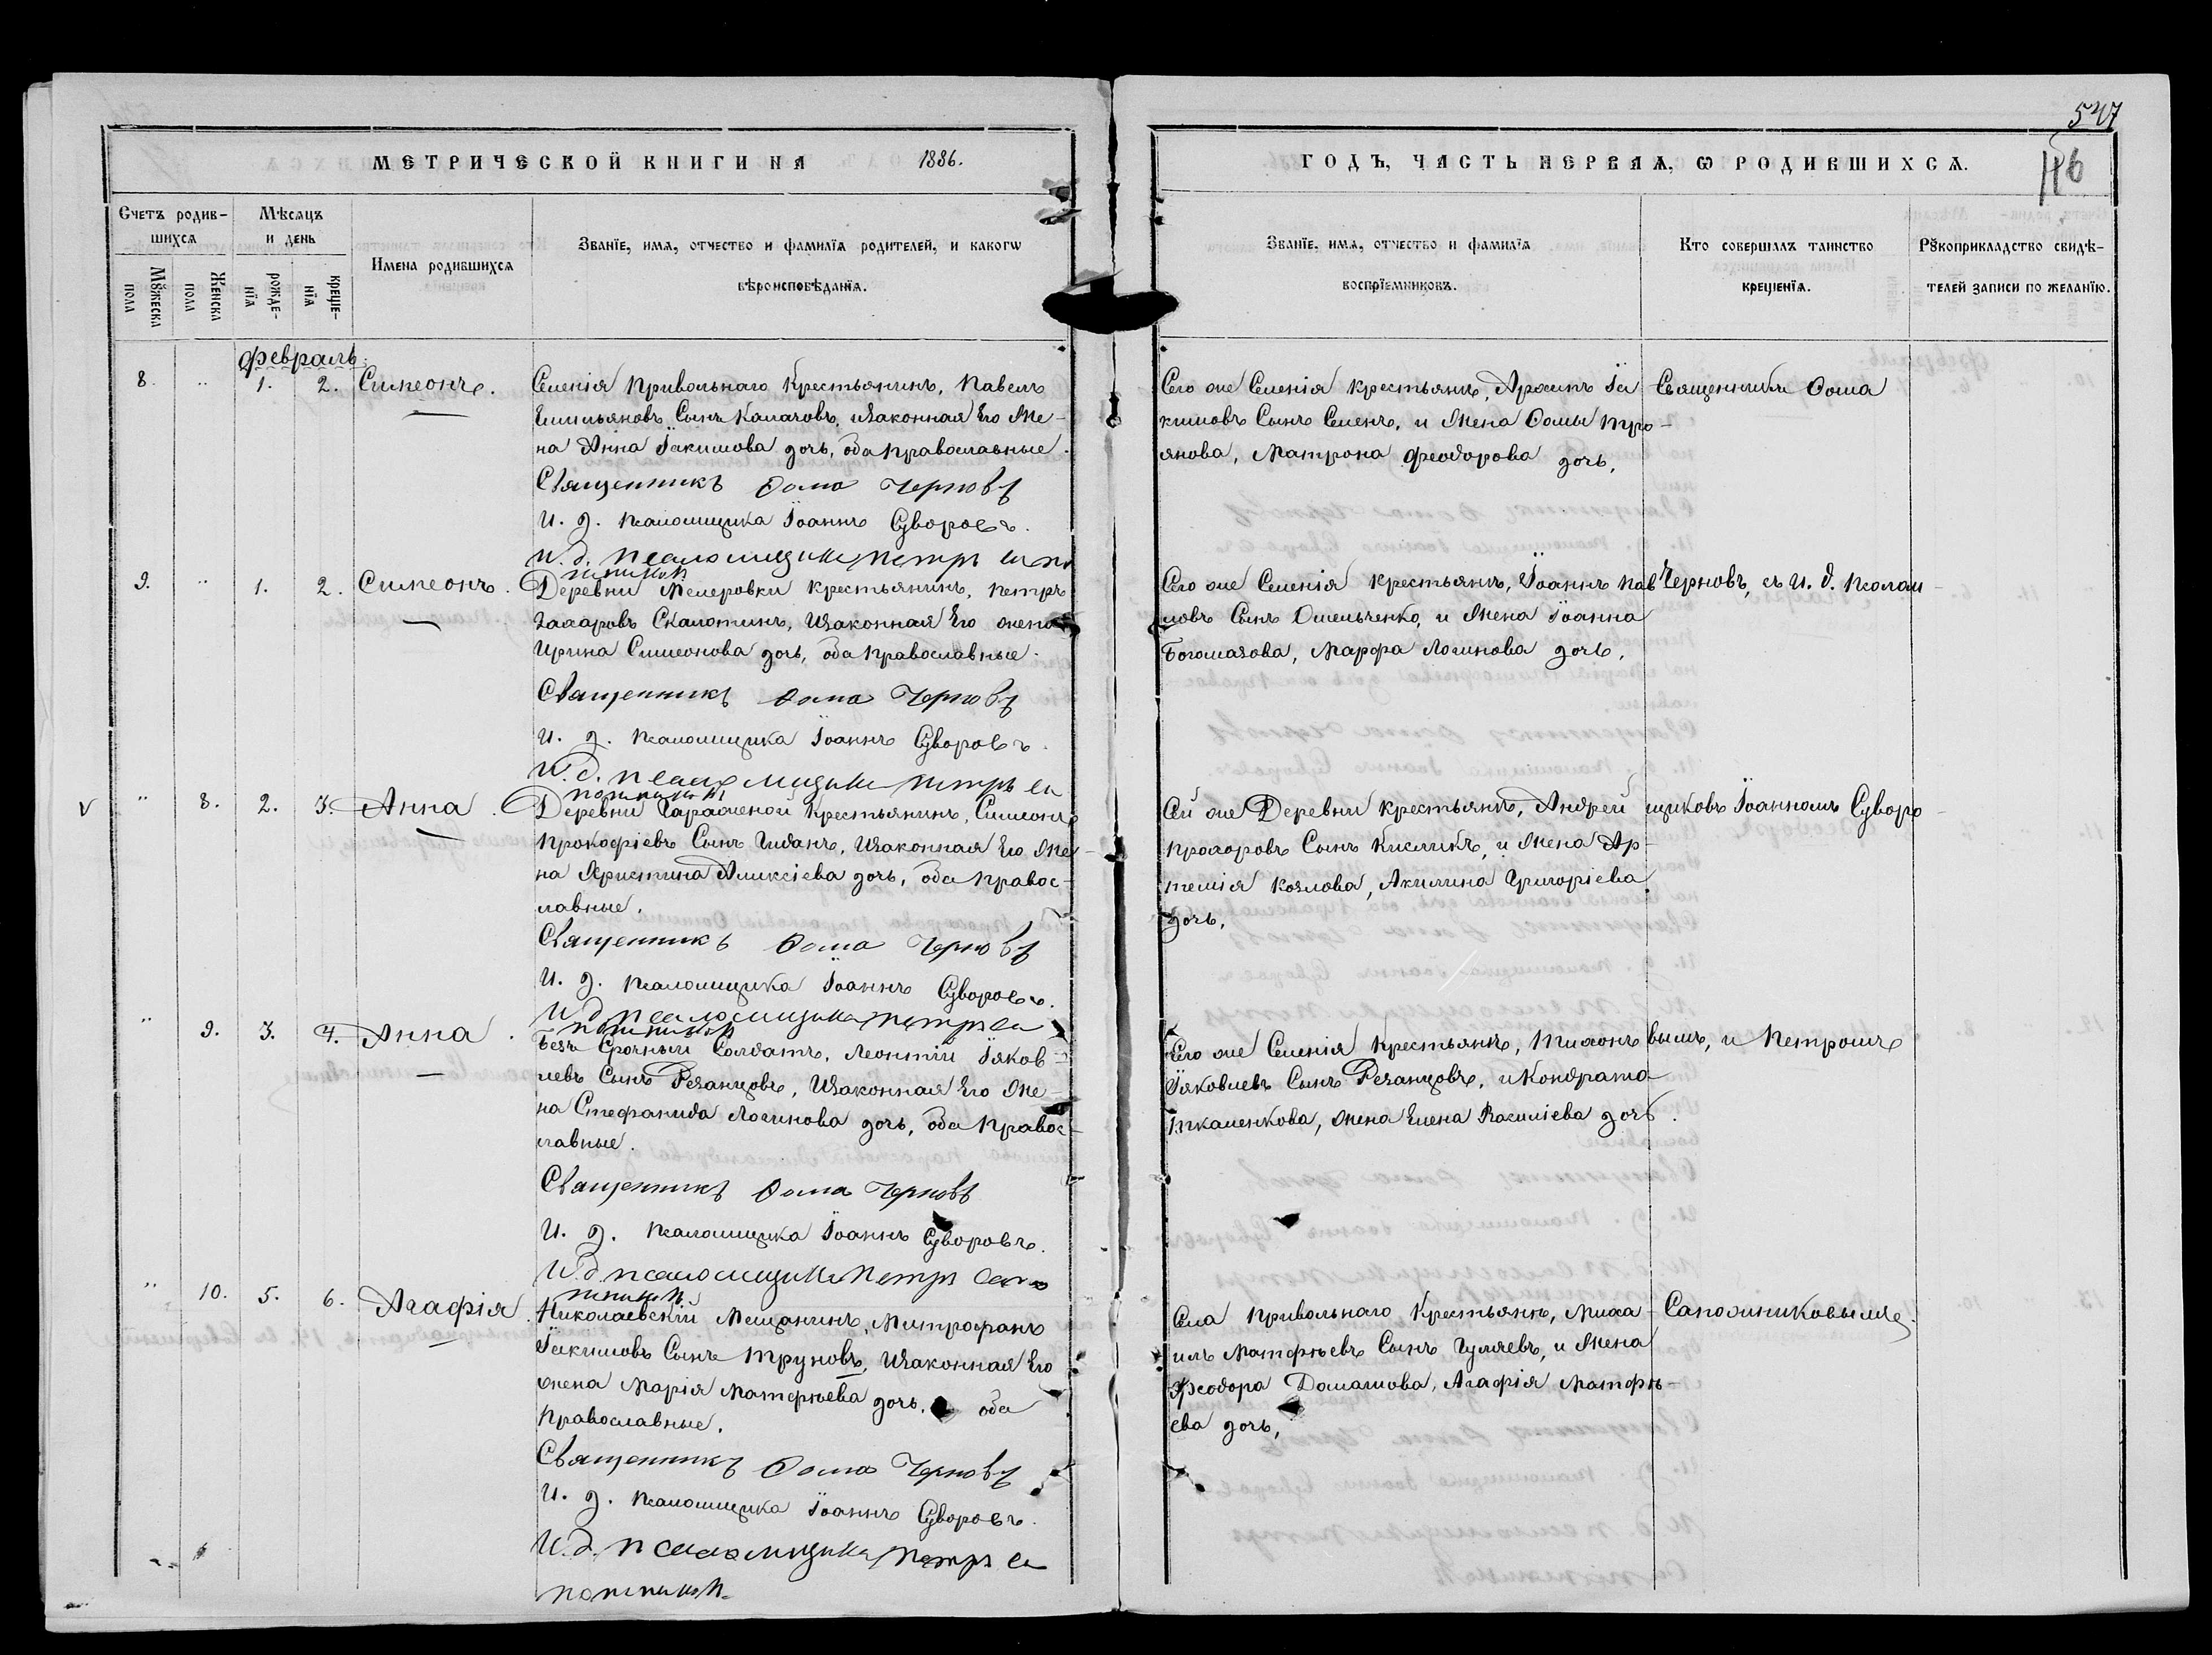 547
116
МЕТРИЧЕСКОЙ КНИГИ НА 1886.
ГОДЪ, ЧАСТЬ ПЕРВАѦ, Ѡ РОДИВШИХСѦ.
Счетъ родив-
шихсѧ
Мѣсѧцъ
и день
Мꙋжеска
пола
Женска
пола
рожде-
нїѧ
креще-
нїѧ
Имена родившихсѧ
Званїе, имѧ, отчество и фамилїѧ родителей, и какогѡ
вѣроисповѣданїѧ.
Званїе, имѧ, отчество и фамилїѧ
воспрїемниковъ.
Кто совершалъ таинство
крещенїѧ.
Рꙋкоприкладство свидѣ-
телей записи по желанїю.
Февраль.
8. " 1. 2. Симеонъ.
Селенія Привольнаго Крестьянинъ, Павелъ
Емильяновъ Сынъ Калачовъ, изаконная Его Же-
на Анна Іакимова дочь, оба православные.
Священникъ Ѳома Черновъ
И. д. псаломщика Іоаннъ Суворовъ.
И. д. псаломщика Петръ Сапо
жников
Сего же Селенія крестьянъ, Архипъ Іа
кимовъ Сынъ Семенъ, и Жена Ѳомы Тро-
янова, Матрона Феодорова дочь,
Священникъ Ѳома
9. " 1. 2. Симеонъ.
Деревни Мелеровки крестьянинъ, Петръ
Захаровъ Скалотинъ, изаконная Его жена
Ирина Симеонова дочь, оба православные.
Священникъ Ѳома Черновъ
И. д. псаломщика Іоаннъ Суворовъ.
И. д. псаломщика Петръ Са
пожников
Сего же Селенія крестьянъ, Іоаннъ Пав
ловъ Сынъ Омельченко, и Жена Іоанна
Богомазова, Марфа Логинова дочь,
Черновъ, съ И. д. Псалом-
" 8. 2. 3. Анна.
Деревни Гараженой Крестьянинъ, Симеонъ
Прокофіевъ Сынъ Чибанъ, изаконная Его Же-
на Христина Алексіева дочь, оба правос-
лавные.
Священникъ Ѳома Черновъ
И. д. псаломщика Іоаннъ Суворовъ.
И. д. псаломщика Петръ Са
пожников
Сей же Деревни крестьянъ, Андрей
Прохоровъ Сынъ Кисликъ, и Жена Ар-
темія Козлова, Акилина Григоріева
дочь,
щиковъ Іоанномъ Суворо-
" 9. 3. 4. Анна.
Безъ Срочный Солдатъ, Леонтій Іаков-
левъ Сынъ Резанцовъ, изаконная Его Же-
на Стефанида Логинова дочь, оба правос-
лавные.
Священникъ Ѳома Черновъ
И. д. псаломщика Іоаннъ Суворовъ.
И. д. псаломщика Петръ Сапо
жников
Сего же Селенія крестьянъ, Тихонъ
Іаковлевъ Сынъ Резанцовъ, и Кондрата
Ткаченкова, Жена Елена Василіева дочь.
вымъ, и Петромъ
" 10. 5. 6. Агафія.
Николаевскій Мещанинъ, Митрофанъ
Іакимовъ Сынъ Труновъ, изаконная Его
жена Марія Матфѣева дочь, оба
православные.
Священникъ Ѳома Черновъ
И. д. псаломщика Іоаннъ Суворовъ.
И. д. псаломщика Петръ Са
пожников
Села Привольнаго Крестьянъ, Миха-
илъ Матфѣевъ Сынъ Гуляевъ, и Жена
Феодора Домашова, Агафія Матфѣ-
ева дочь,
Сапожниковымъ.